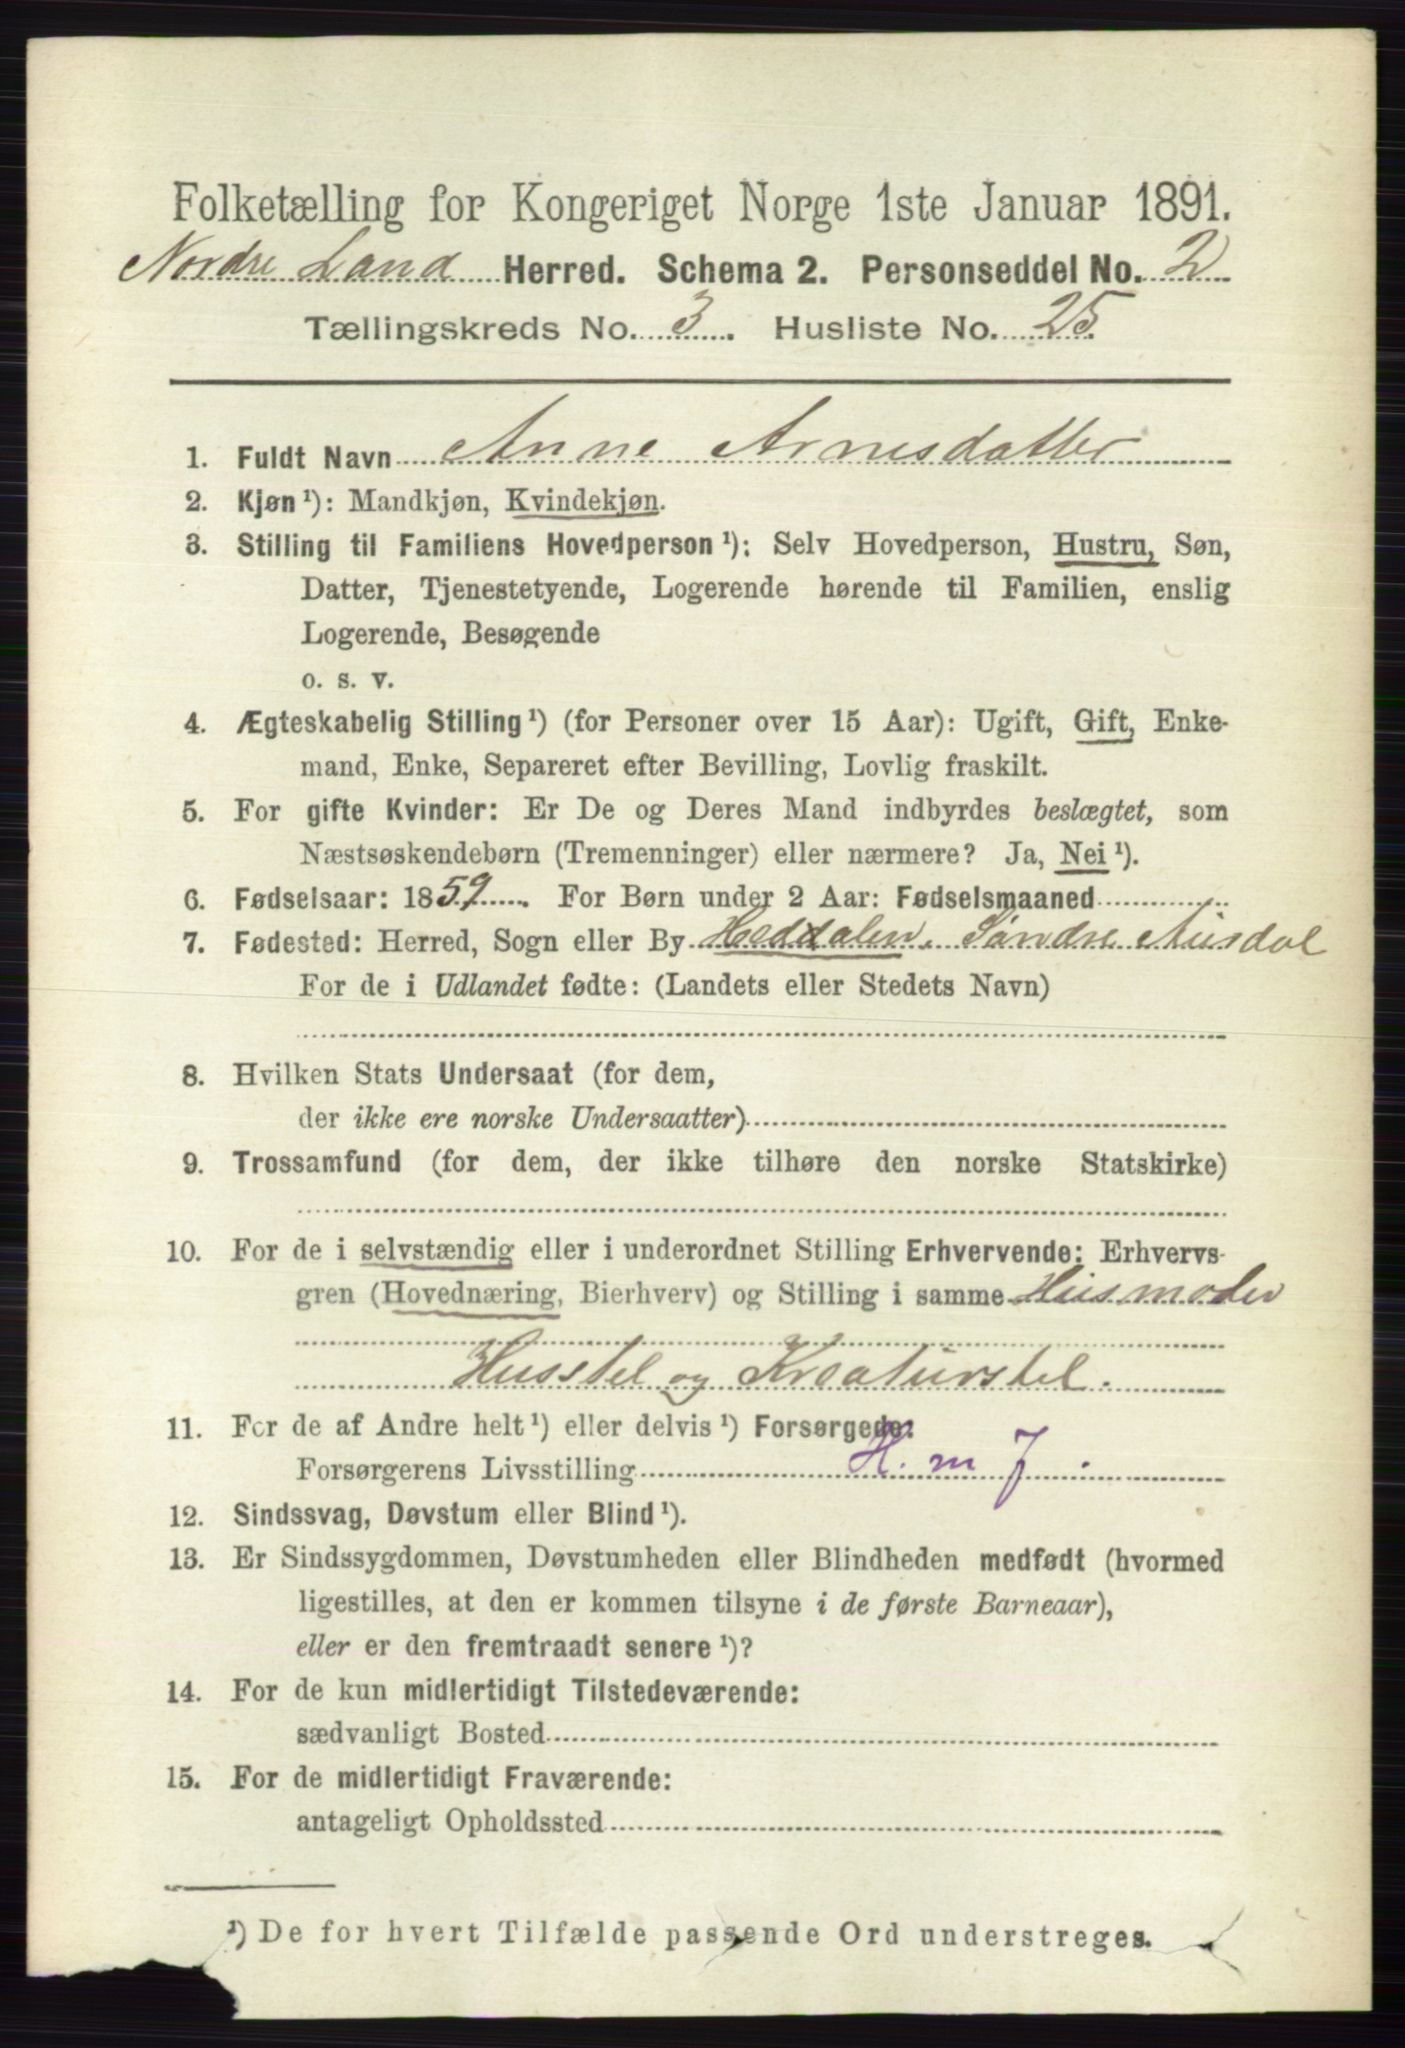 Folketælling for Kongeriget Norge 1ste Januar 1891.
Nordre Land Herred. Schema 2. Personseddel No. 2
Tællingskreds No. 3. Husliste No. 25.
1. Fuldt Navn Anne Arnesdatter
2. Kjøn ¹): Mandkjøn, Kvindekjøn.
3. Stilling til Familiens Hovedperson ¹): Selv Hovedperson, Hustru, Søn,
Datter, Tjenestetyende, Logerende hørende til Familien, enslig
Logerende, Besøgende
o. s. v.
4. Ægteskabelig Stilling ¹) (for Personer over 15 Aar): Ugift, Gift, Enke-
mand, Enke, Separeret efter Bevilling, Lovlig fraskilt.
5. For gifte Kvinder: Er De og Deres Mand indbyrdes beslægtet, som
Næstsøskendebørn (Tremenninger) eller nærmere? Ja, Nei ¹).
6. Fødselsaar: 1859. For Børn under 2 Aar: Fødselsmaaned
7. Fødested: Herred, Sogn eller By Heddalen. Søndre Ausdal
For de i Udlandet fødte: (Landets eller Stedets Navn)
8. Hvilken Stats Undersaat (for dem,
der ikke ere norske Undersaatter)
9. Trossamfund (for dem, der ikke tilhøre den norske Statskirke)
10. For de i selvstændig eller i underordnet Stilling Erhvervende: Erhvervs-
gren (Hovednæring, Bierhverv) og Stilling i samme Husmoder
Husstel og Kreaturstel.
11. For de af Andre helt ¹) eller delvis ¹) Forsørgede:
Forsørgerens Livsstilling H. m J.
12. Sindssvag, Døvstum eller Blind ¹).
13. Er Sindssygdommen, Døvstumheden eller Blindheden medfødt (hvormed
ligestilles, at den er kommen tilsyne i de første Barneaar),
eller er den fremtraadt senere ¹)?
14. For de kun midlertidigt Tilstedeværende:
sædvanligt Bosted
15. For de midlertidigt Fraværende:
antageligt Opholdssted
¹) De for hvert Tilfælde passende Ord understreges.